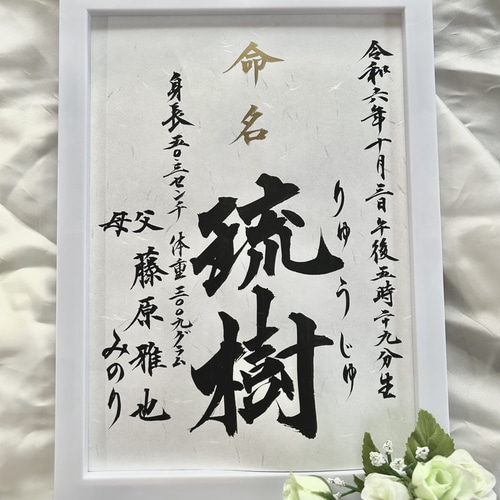 令和六年十月三日午後五時二十九分生
りゅうじゅ
命名
琉樹
身長五〇.三センチ 体重三〇〇九グラム
父 藤原雅也
母 みのり